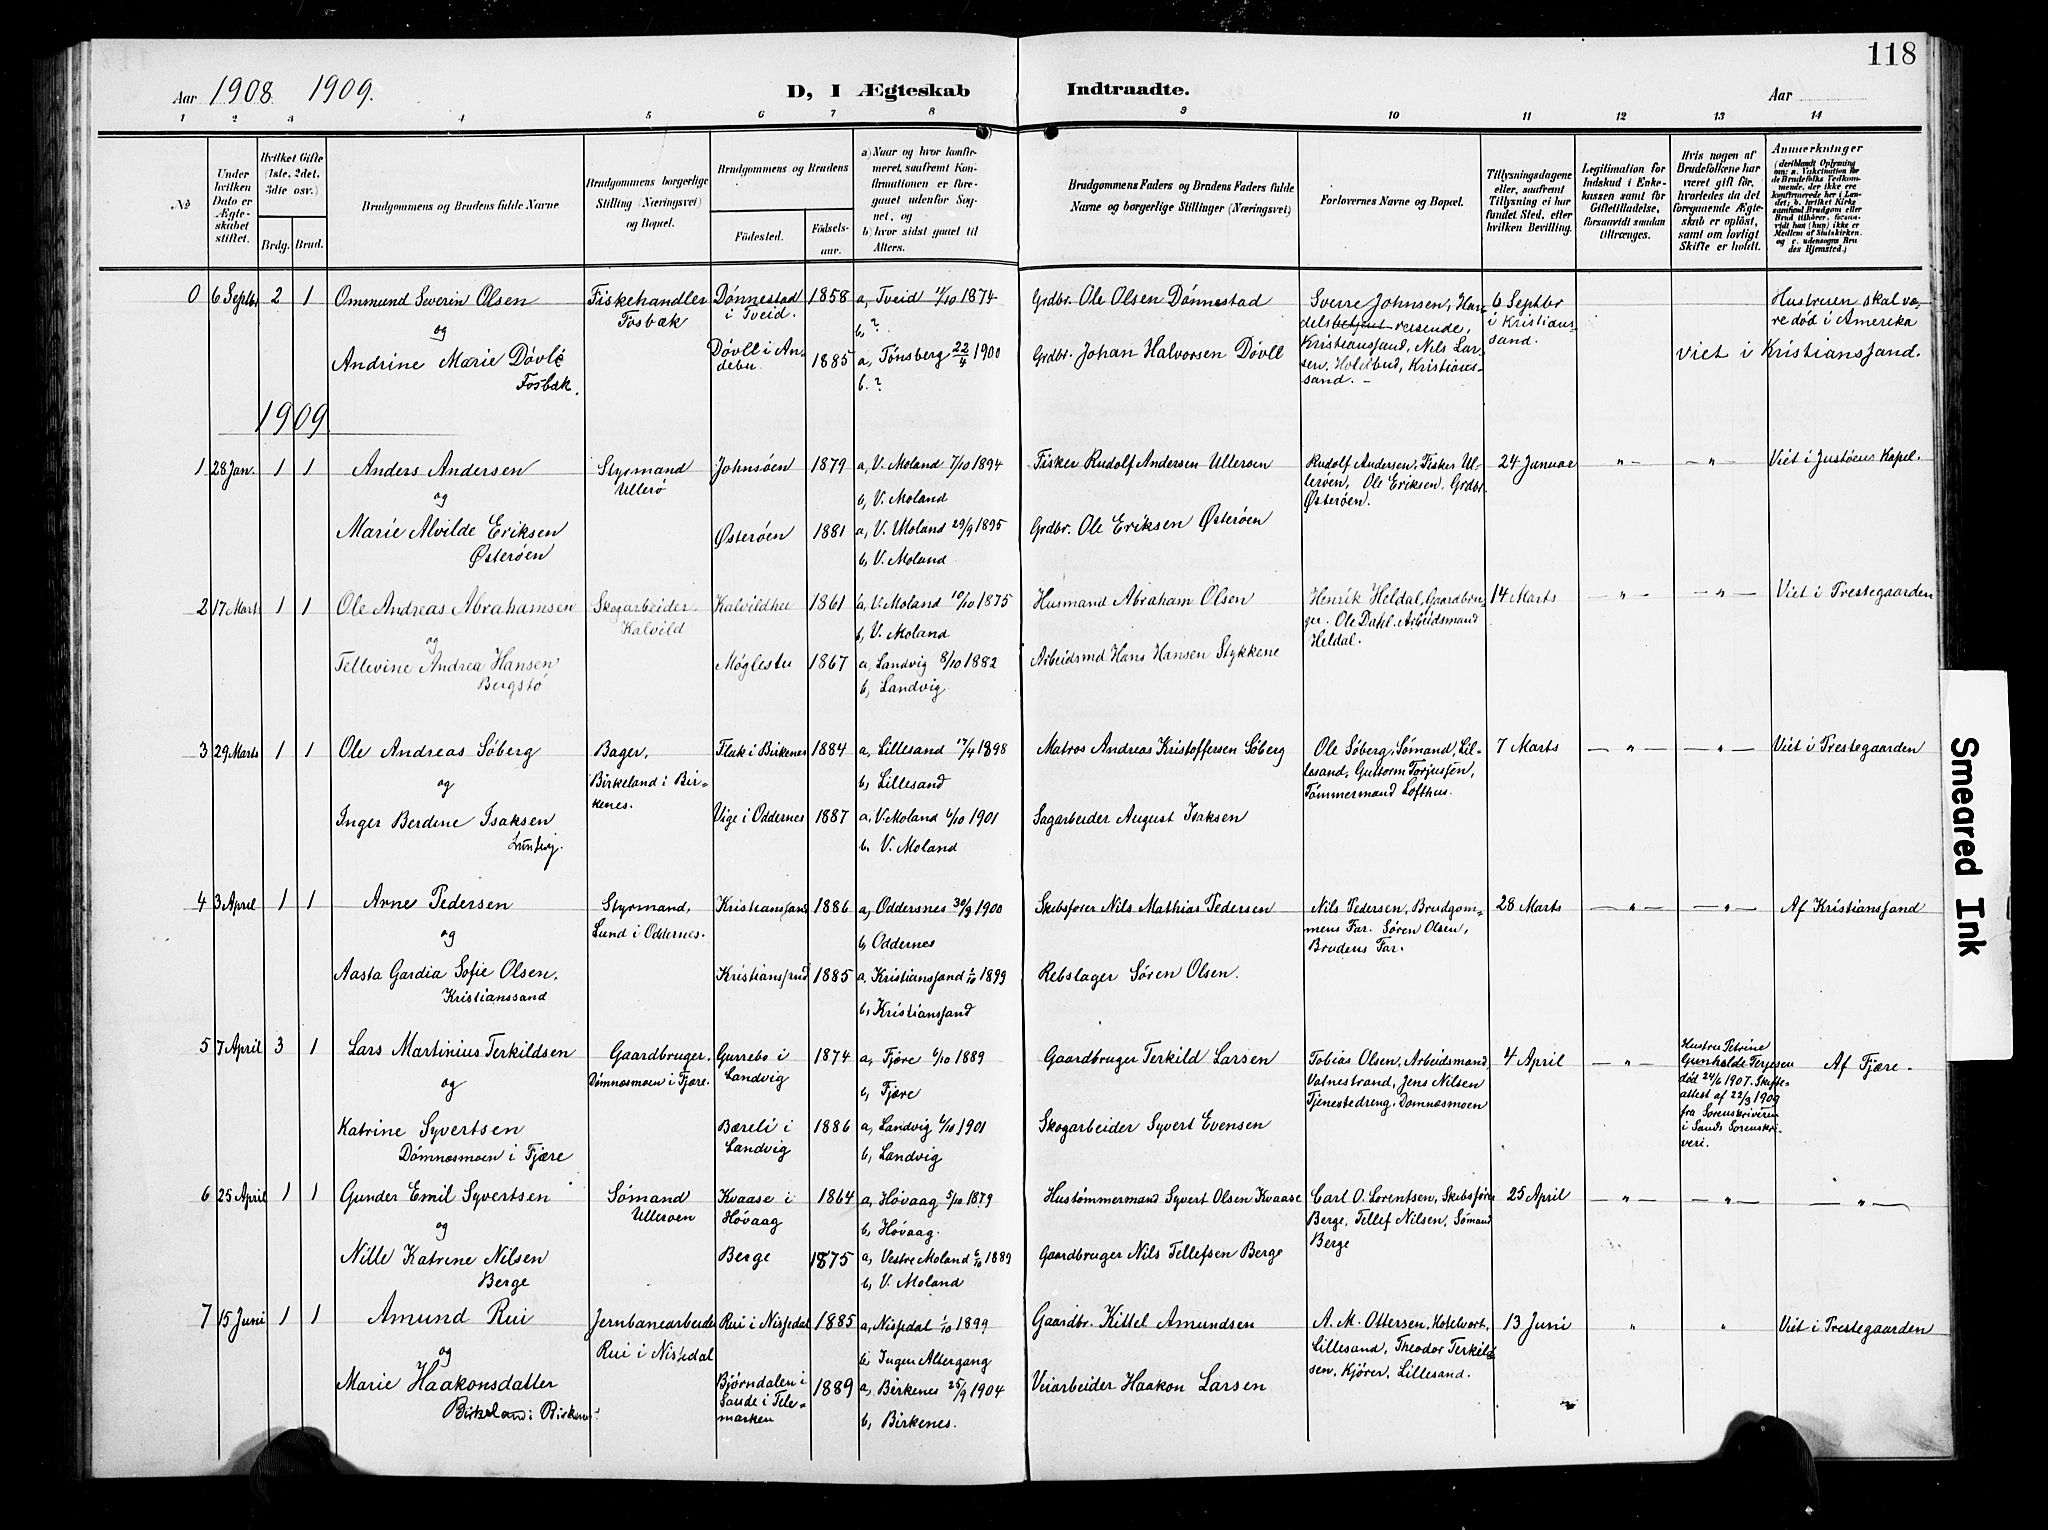 118
Aar 1908 1909.
D, I Ægteskab Indtraadte.
Aar
1 2 3 4 5 6 7 8 9 10 11 12 13 14
№
Under hvilken Dato er Ægteskabet stiftet.
Hvilket Gifte (1ste, 2det, 3die osv.)
Brdg. Brud.
Brudgommens og Brudens fulde Navne
Brudgommens borgerlige Stilling (Næringsvei) og Bopæl.
Brudgommens og Brudens
Fødested. Fødselsaar.
a) Naar og hvor konfirmeret, saafremt Konfirmationen er foregaaet udenfor Sognet, og
b) hvor sidst gaaet til Alters.
Brudgommens Faders og Brudens Faders fulde Navne og borgerlige Stillinger (Næringsvei)
Forlovernes Navne og Bopæl.
Tillysningsdagene eller, saafremt Tillysning ei har fundet Sted, efter hvilken Bevilling.
Legitimation for Indskud i Enkekassen samt for Giftetilladelse, forsaavidt saadan tiltrænges.
Hvis nogen af Brudefolkene har været gift før, hvorledes da det foregaaende Ægteskab er opløst, samt om lovligt Skifte er holdt.
Anmerkninger
0 6 Septbr 2 1 Ommund Severin Olsen
og
Andrine Marie Døvle
Fosbæk.
Fiskehandler
Fosbæk
Dønnestad
i Tveid.
1858
a, Tveid 11/10 1874
b, ?
Døvll i Andebu
1885
a, Tønsberg 22/4 1900
b. ?
Grdbr. Ole Olsen Dønnestad
Grdbr. Johan Halvorsen Døvll
Sverre Johnsen, Handelsbetjent reisende,
Kristianssand, Nils Larsen, Hotelbud, Kristianssand. –
6 Septbr
i Kristianssand.
Hustruen skal være død i Amerika
Viet i Kristianssand.
1909
1 28 Jan. 1 1 Anders Andersen
og
Marie Alvilde Eriksen
Østerøen
Styrmand
Ullerø
Johnsøen 1879
a, V. Moland 7/10 1894
b, V. Moland
Østerøen 1881
a, V. Moland 29/9 1895
b, V. Moland
Fisker Rudolf Andersen Ullerøen
Grdbr. Ole Eriksen Østerøen
Rudolf Andersen, Fisker Ullerøen, Ole Eriksen. Grdbr.
Østerøen.
24 Januar
– " – – " –
Viet i Justøens Kapel.
2 17 Marts 1 1 Ole Andreas Abrahamsen
og
Tellevine Andrea Hansen
Bergstø
Skogarbeider.
Kalvild
Kalvildhei 1861
a, V. Moland 10/10 1875
b, V. Moland
Møglestu 1867
a, Landvig 8/10 1882
b, Landvig
Husmand Abraham Olsen
Arbeidsmd Hans Hansen Stykkene
Henrik Heldal, Gaardbruger. Ole Dahl. Arbeidsmand
Heldal.
14 Marts
– " – – " –
Viet i Prestegaarden
3 29 Marts 1 1 Ole Andreas Søberg
og
Inger Berdine Isaksen
Bager,
Birkeland i Birkenes.
Flak i Birkenes 1884
a, Lillesand 17/4 1898
b, Lillesand
Vige i Oddernes 1887
a, V. Moland 6/10 1901
b. V. Moland
Matros Andreas Kristoffersen Søberg
Sagarbeider August Isaksen
Ole Søberg, Sømand, Lillesand, Guttorm Torjussen,
Tømmermand Lofthus.
7 Marts
– " – – " –
Viet i Prestegaarden
4 3 April 1 1 Arne Pedersen
og
Aasta Gardia Sofie Olsen.
Kristianssand
Styrmand,
Lund i Oddernes.
Kristianssand 1886
a, Oddersnes 30/9 1900
b, Oddernes
Kristianssnd 1885
a, Kristianssand 1/10 1899
b, Kristianssand
Skibsfører Nils Mathias Pedersen
Rebslager Søren Olsen.
Nils Pedersen, Brudgommens Far. Søren Olsen,
Brudens Far.
28 Marts
– " – – " –
Af Kristianssand
5 7 April 3 1 Lars Martinius Terkildsen
og
Katrine Syvertsen
Dømnesmoen i Fjære
Gaardbruger.
Dømnesmoen i Fjære.
Gurrebo i
Landvig
1874
a, Fjære 6/10 1889
b, Fjære
Bæreli i
Landvig
1886
a, Landvig 6/10 1901
b, Landvig
Gaardbruger Terkild Larsen
Skogarbeider Syvert Evensen
Tobias Olsen, Arbeidsmand,
Vatnestrand, Jens Nilsen
Tjenestedreng, Domnesmoen
4 April
– " –
Hustru Petrine
Gunhalde Terjesen
død 24/6 1907. Skifteattest af 22/3 1909
fra Sorenskriveren
i Sands Sorenskriveri.
Af Fjære.
6 25 April 1 1 Gunder Emil Syvertsen
og
Nille Katrine Nilsen
Berge
Sømand
Ulleroen
Kvaase i
Høvaag
1864
a, Høvaag 5/10 1879
b, Høvaag.
Berge 1875
a, Vestre Moland 6/10 1889
b, V. Moland
Hustømmermand Syvert Olsen Kvaase
Gaardbruger Nils Tellefsen Berge
Carl O. Lorentsen, Skibsfører
Berge, Tellef Nilsen, Sømand
Berge
25 April
– " – – " – – " –
7 15 Juni 1 1 Amund Rui
og
Marie Haakonsdatter
Birkeland i Birkenes.
Jernbanearbeider
Rui i Nissedal
Rui i Nissedal 1885
a, Nissedal 1/10 1899
b, Ingen Altergang
Bjørndalen i
Saude i Telemarken
1889
a, Birkenes 25/9 1904
b, Birkenes.
Gaardbr. Kittel Amundsen
Veiarbeider Haakon Larsen
A. M. Ottersen, Hotelvært,
Lillesand, Theodor Terkildsen, Kjører, Lillesand.
13 Juni
" "
Viet i Prestegaarden
Smeared Ink